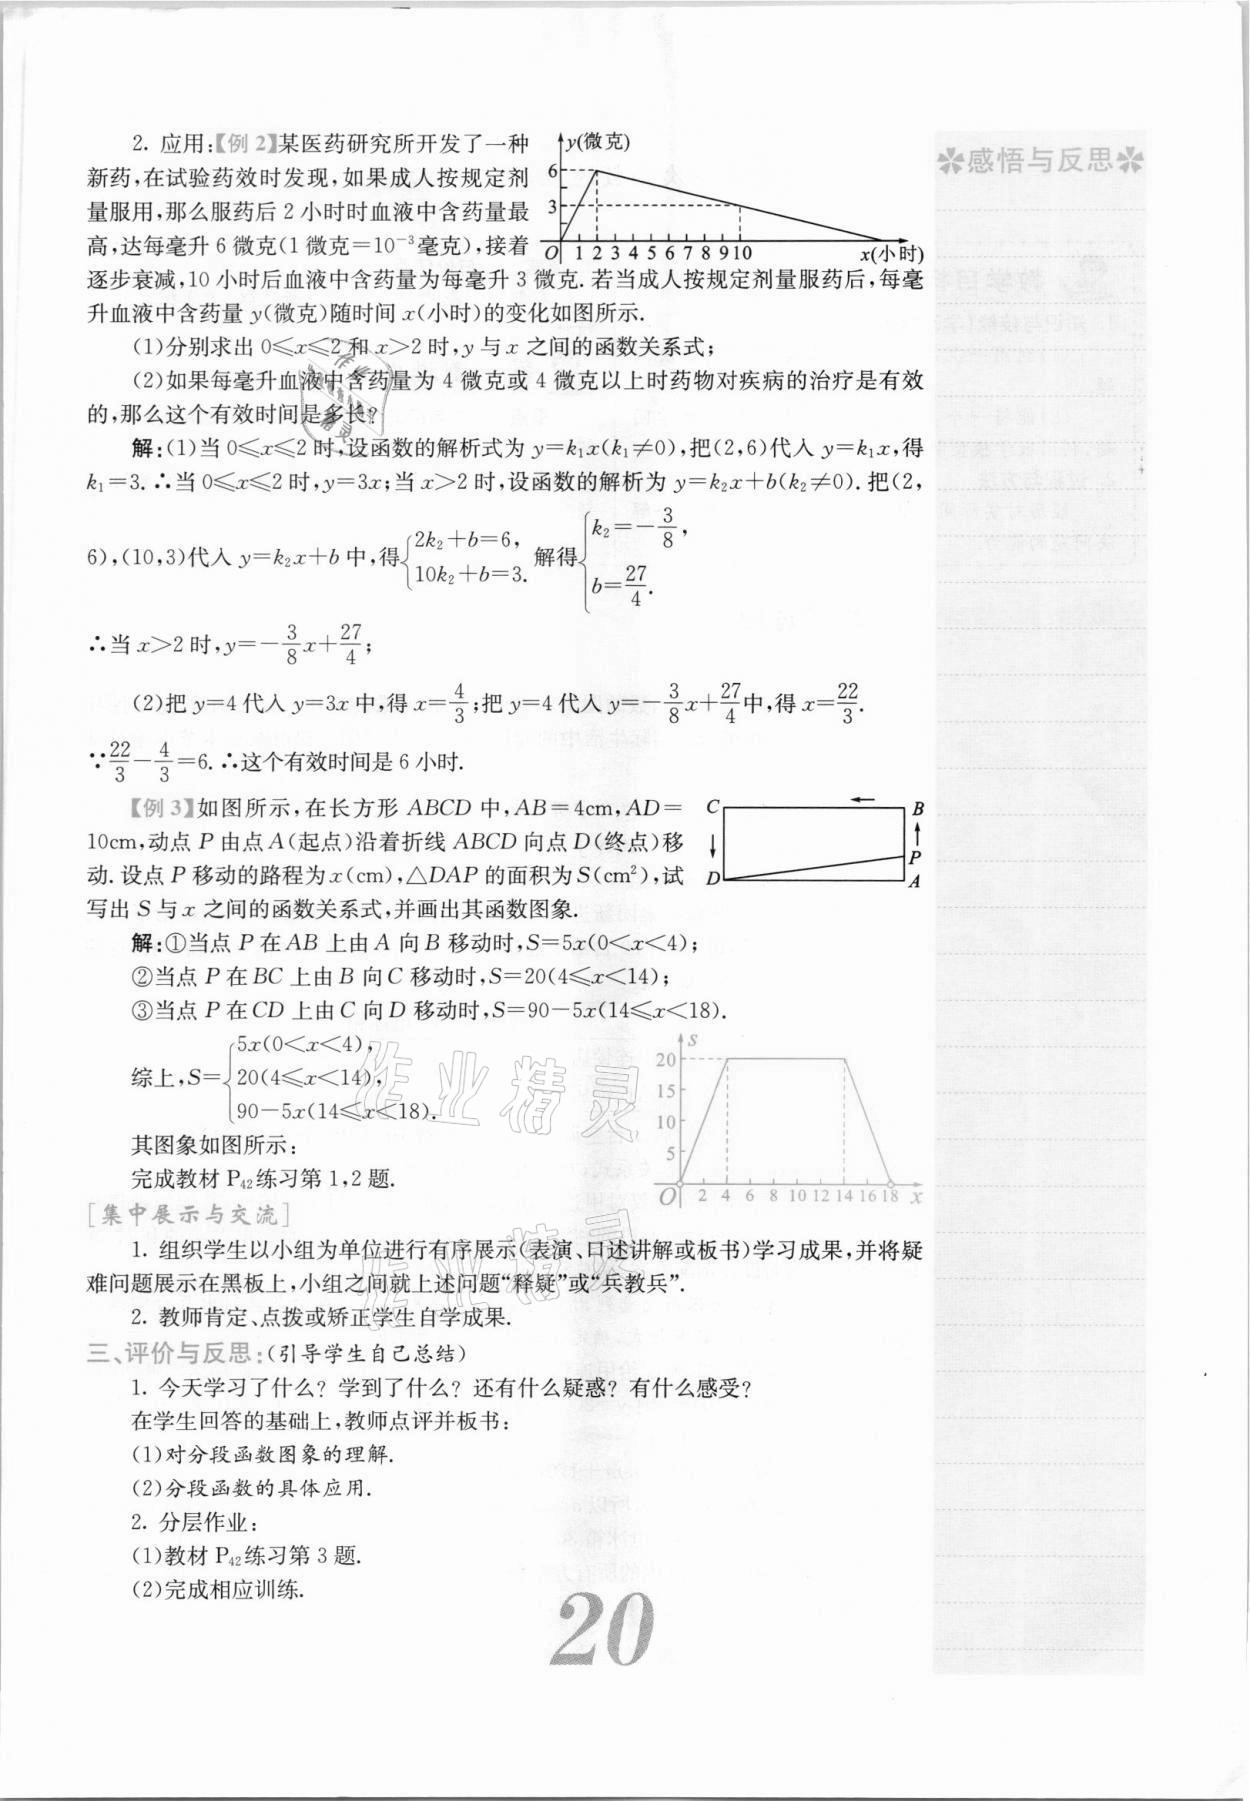 2. 应用:【例2】某医药研究所开发了一种
新药,在试验药效时发现,如果成人按规定剂
量服用,那么服药后2小时时血液中含药量最
高,达每毫升6微克(1微克=10⁻³毫克),接着
逐步衰减,10小时后血液中含药量为每毫升3微克.若当成人按规定剂量服药后,每毫
升血液中含药量y(微克)随时间x(小时)的变化如图所示.
y(微克)
6
3
O 1 2 3 4 5 6 7 8 9 10 x(小时)
(1)分别求出0≤x≤2和x>2时,y与x之间的函数关系式;
(2)如果每毫升血液中含药量为4微克或4微克以上时药物对疾病的治疗是有效
的,那么这个有效时间是多长?
解:(1)当0≤x≤2时,设函数的解析式为y=k₁x(k₁≠0),把(2,6)代入y=k₁x,得
k₁=3.∴当0≤x≤2时,y=3x;当x>2时,设函数的解析为y=k₂x+b(k₂≠0).把(2,
6),(10,3)代入y=k₂x+b中,得{2k₂+b=6, 10k₂+b=3. 解得{k₂=-3/8, b=27/4.
∴当x>2时,y=-3/8x+27/4;
(2)把y=4代入y=3x中,得x=4/3;把y=4代入y=-3/8x+27/4中,得x=22/3.
∵22/3-4/3=6.∴这个有效时间是6小时.
【例3】如图所示,在长方形ABCD中,AB=4cm,AD=
10cm,动点P由点A(起点)沿着折线ABCD向点D(终点)移
动.设点P移动的路程为x(cm),△DAP的面积为S(cm²),试
写出S与x之间的函数关系式,并画出其函数图象.
C ← B
↓ ↑
P
D A
解:①当点P在AB上由A向B移动时,S=5x(0<x<4);
②当点P在BC上由B向C移动时,S=20(4≤x<14);
③当点P在CD上由C向D移动时,S=90-5x(14≤x<18).
综上,S={5x(0<x<4), 20(4≤x<14), 90-5x(14≤x<18).
其图象如图所示:
S
20
15
10
5
O 2 4 6 8 10 12 14 16 18 x
完成教材P₄₂练习第1,2题.
[集中展示与交流]
1. 组织学生以小组为单位进行有序展示(表演、口述讲解或板书)学习成果,并将疑
难问题展示在黑板上,小组之间就上述问题“释疑”或“兵教兵”.
2. 教师肯定、点拨或矫正学生自学成果.
三、评价与反思:(引导学生自己总结)
1. 今天学习了什么?学到了什么?还有什么疑惑?有什么感受?
在学生回答的基础上,教师点评并板书:
(1)对分段函数图象的理解.
(2)分段函数的具体应用.
2. 分层作业:
(1)教材P₄₂练习第3题.
(2)完成相应训练.
20
✽感悟与反思✽
作业精灵
作业精灵
作业精灵